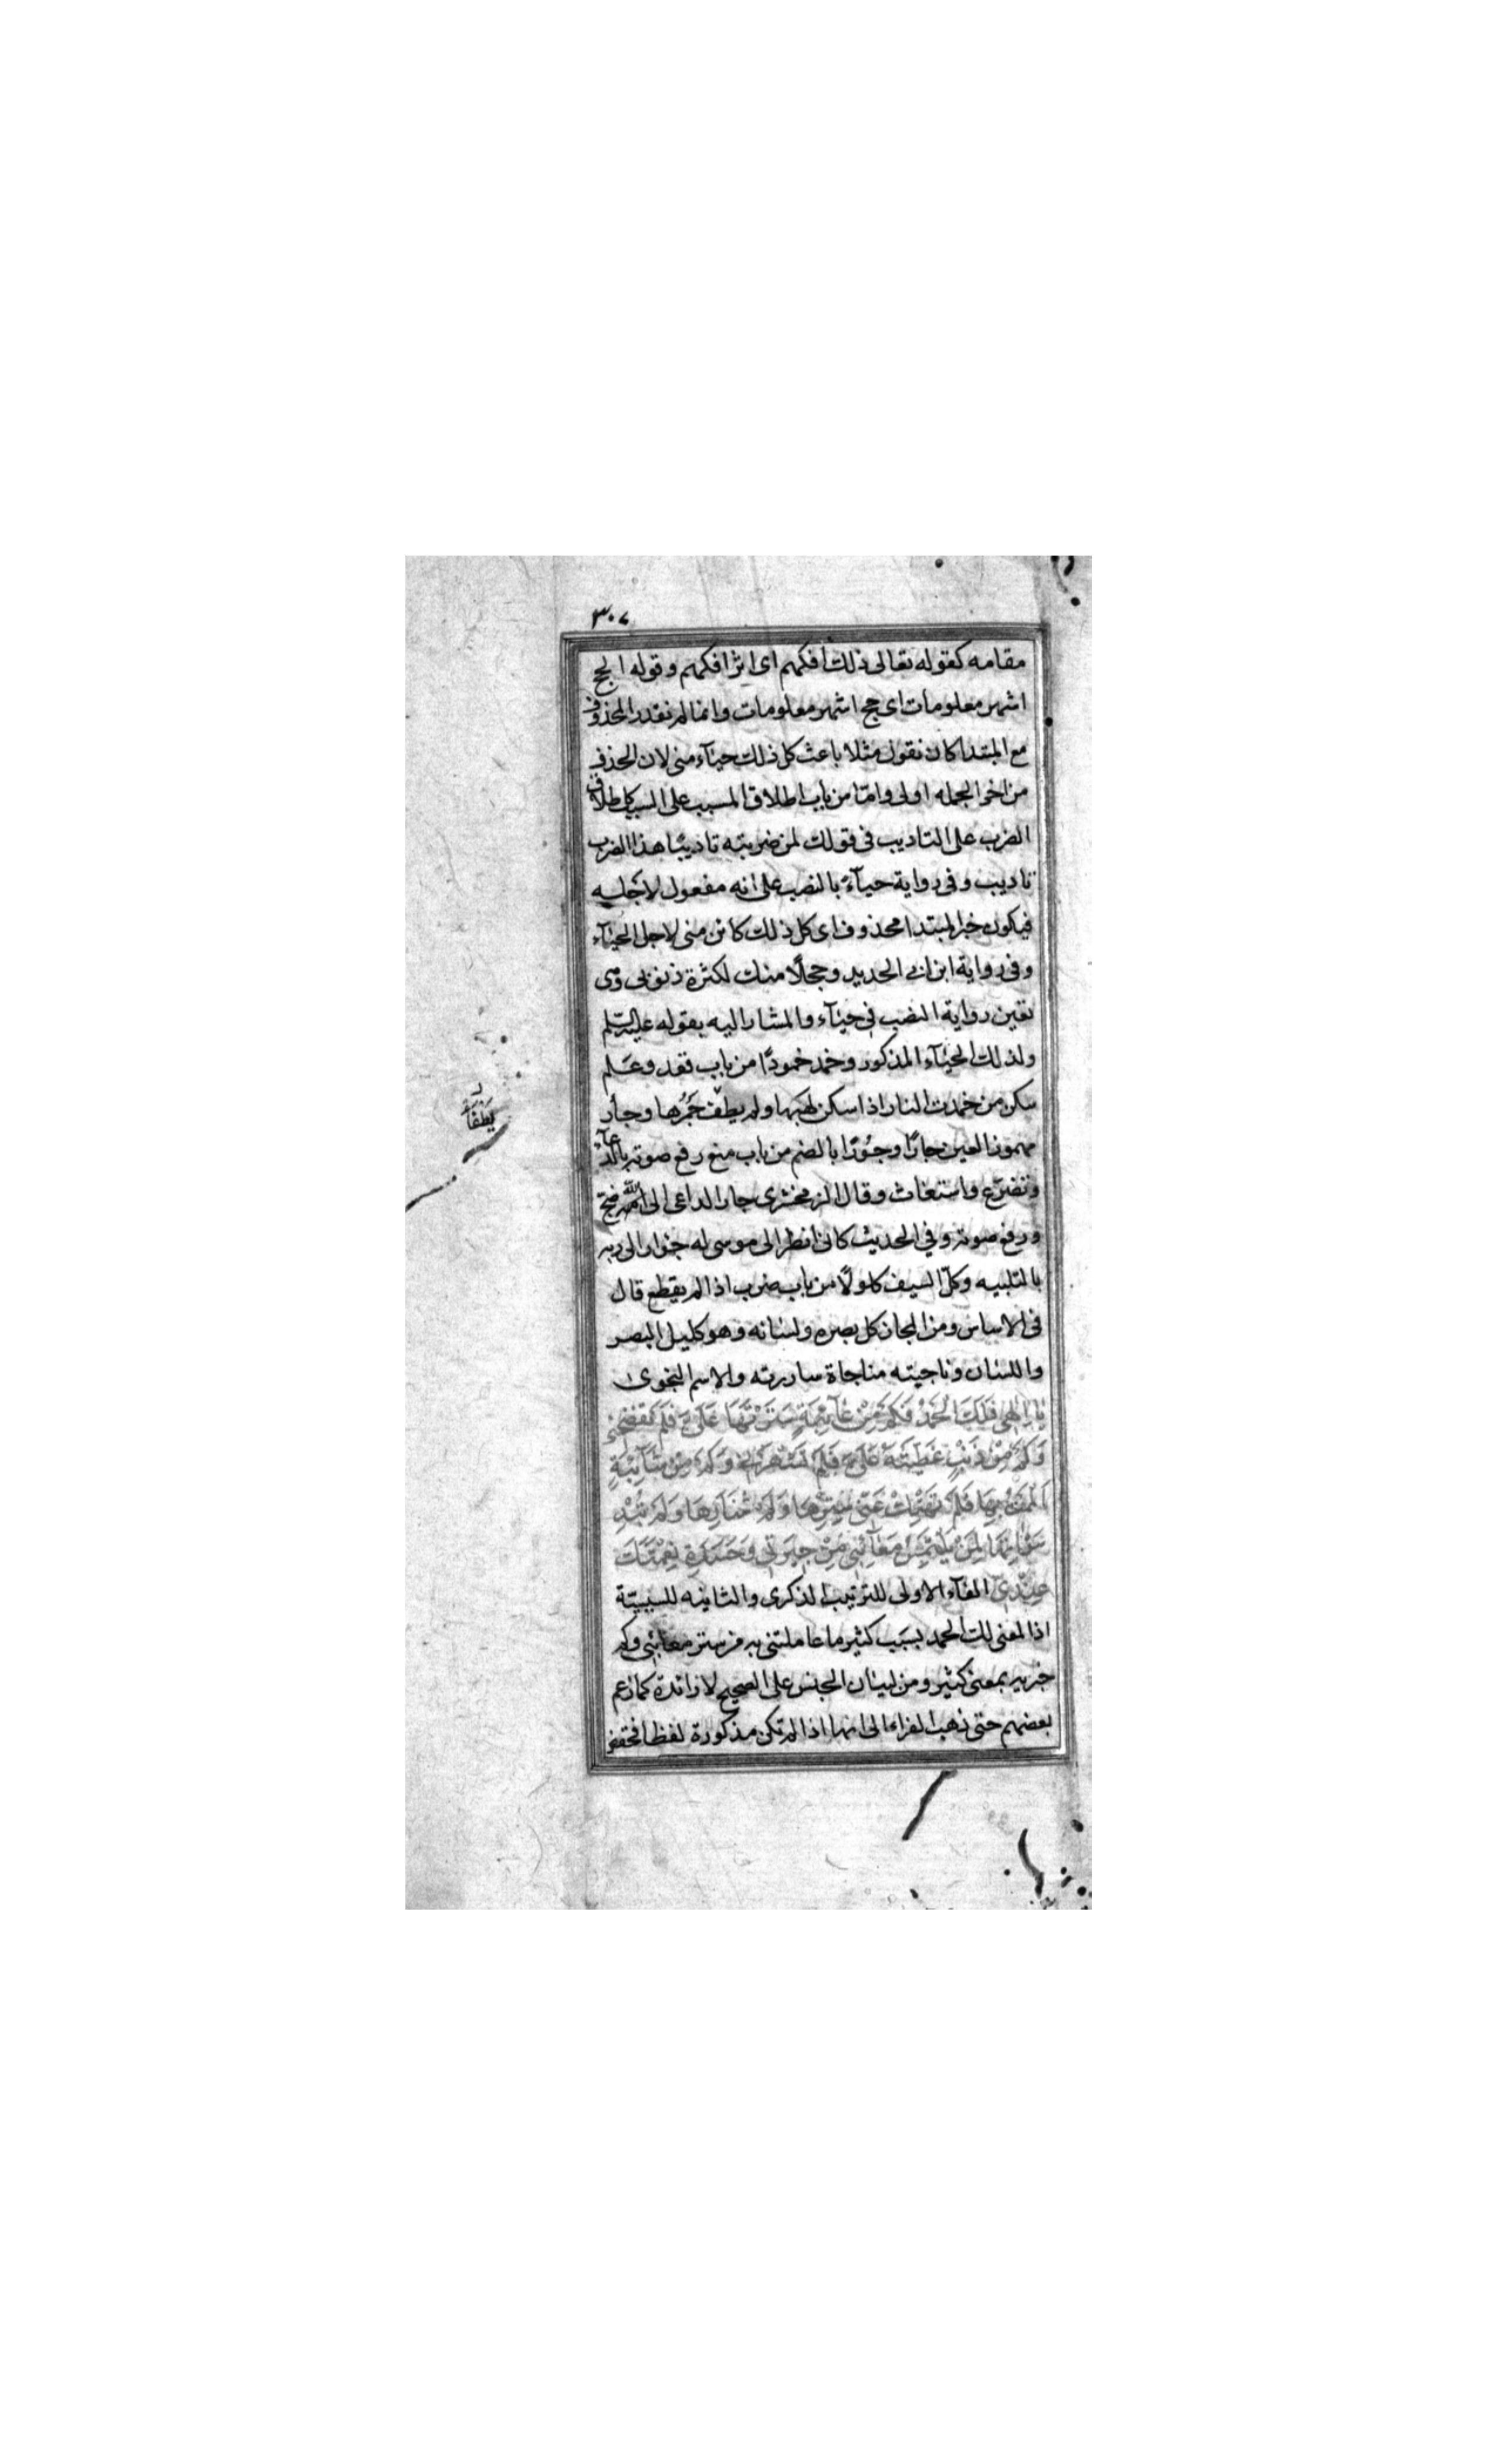 ٣٠٧
مقامه كقوله تعالى ذلك افكهم اى اثر افكهم وقوله الحج
اشهر معلومات اى حج اشهر معلومات وانما لم نقدر المحذوف
مع المبتدا كان نقول مثلا باعث كل ذلك حيآء منى لان الحذف
من اخر الجمله اولى وامّا من باب اطلاق المسبب على السبب كاطلاق
الضرب على التاديب فى قولك لمن ضربته تاديبًا هذا الضرب
تاديب وفى رواية حيآءً بالنصب على انه مفعول لاجله
فيكون خبر المبتدا محذوف اى كل ذلك كائن منى لاجل الحيآء
وفى رواية ابن ابى الحديد وخجلًا منك لكثرة ذنوبى وهى
تعين رواية النصب فى حيآء والمشار اليه بقوله عليه السلم
ولذلك الحيآء المذكور وخمد خمودًا من باب قعد وعلم
سكن من خمدت النار اذا سكن لهبها ولم يطف جمرها وجأر
يطفأ
مهموز العين جارًا وجؤرًا بالضم من باب منع رفع صوته بالدعآء
وتضرّع واستغاث وقال الزمخشرى جار الداعى الى الله ضج
ورفع صوته وفي الحديث كانى انظر الى موسى له جؤار الى ربه
بالتلبيه وكلّ السيف كلولًا من باب ضرب اذا لم يقطع قال
فى الاساس ومن المجاز كل بصره ولسانه وهو كليل البصر
واللسان وناجيته مناجاة ساررته والاسم النجوى
يا اِلٰهى فَلَكَ الحَمْدُ فَكَمْ مِنْ عَآئِبَةٍ سَتَرْتَهَا عَلَىَّ فَلَمْ تَفْضَحْنى
وَكَمْ مِنْ ذَنْبٍ غَطَّيْتَهُ عَلَىَّ فَلَمْ تَشْهَرْنى وَكَمْ مِنْ شَآئِبَةٍ
اَلْمَمْتُ بِهَا فَلَمْ تَهْتِكْ عَنّى سِتْرَهَا وَلَمْ شَنَارَهَا وَلَمْ تُبْدِ
سَوْاٰتِهَا لِمَنْ يَلْتَمِسُ مَعَآئِبى مِنْ جِيرَتى وَحَسَدَةِ نِعْمَتِكَ
عِنْدى الفآء الاولى للترتيب الذكرى والثانيه للسببيّة
اذ المعنى لك الحمد بسبب كثير ما عاملتنى به من ستر معائبى وكم
خبريه بمعنى كثير ومن لبيان الجنس على الصحيح لا زائدة كما زعم
بعضهم حتى ذهب الفراء الى انها اذا لم تكن مذكورة لفظا